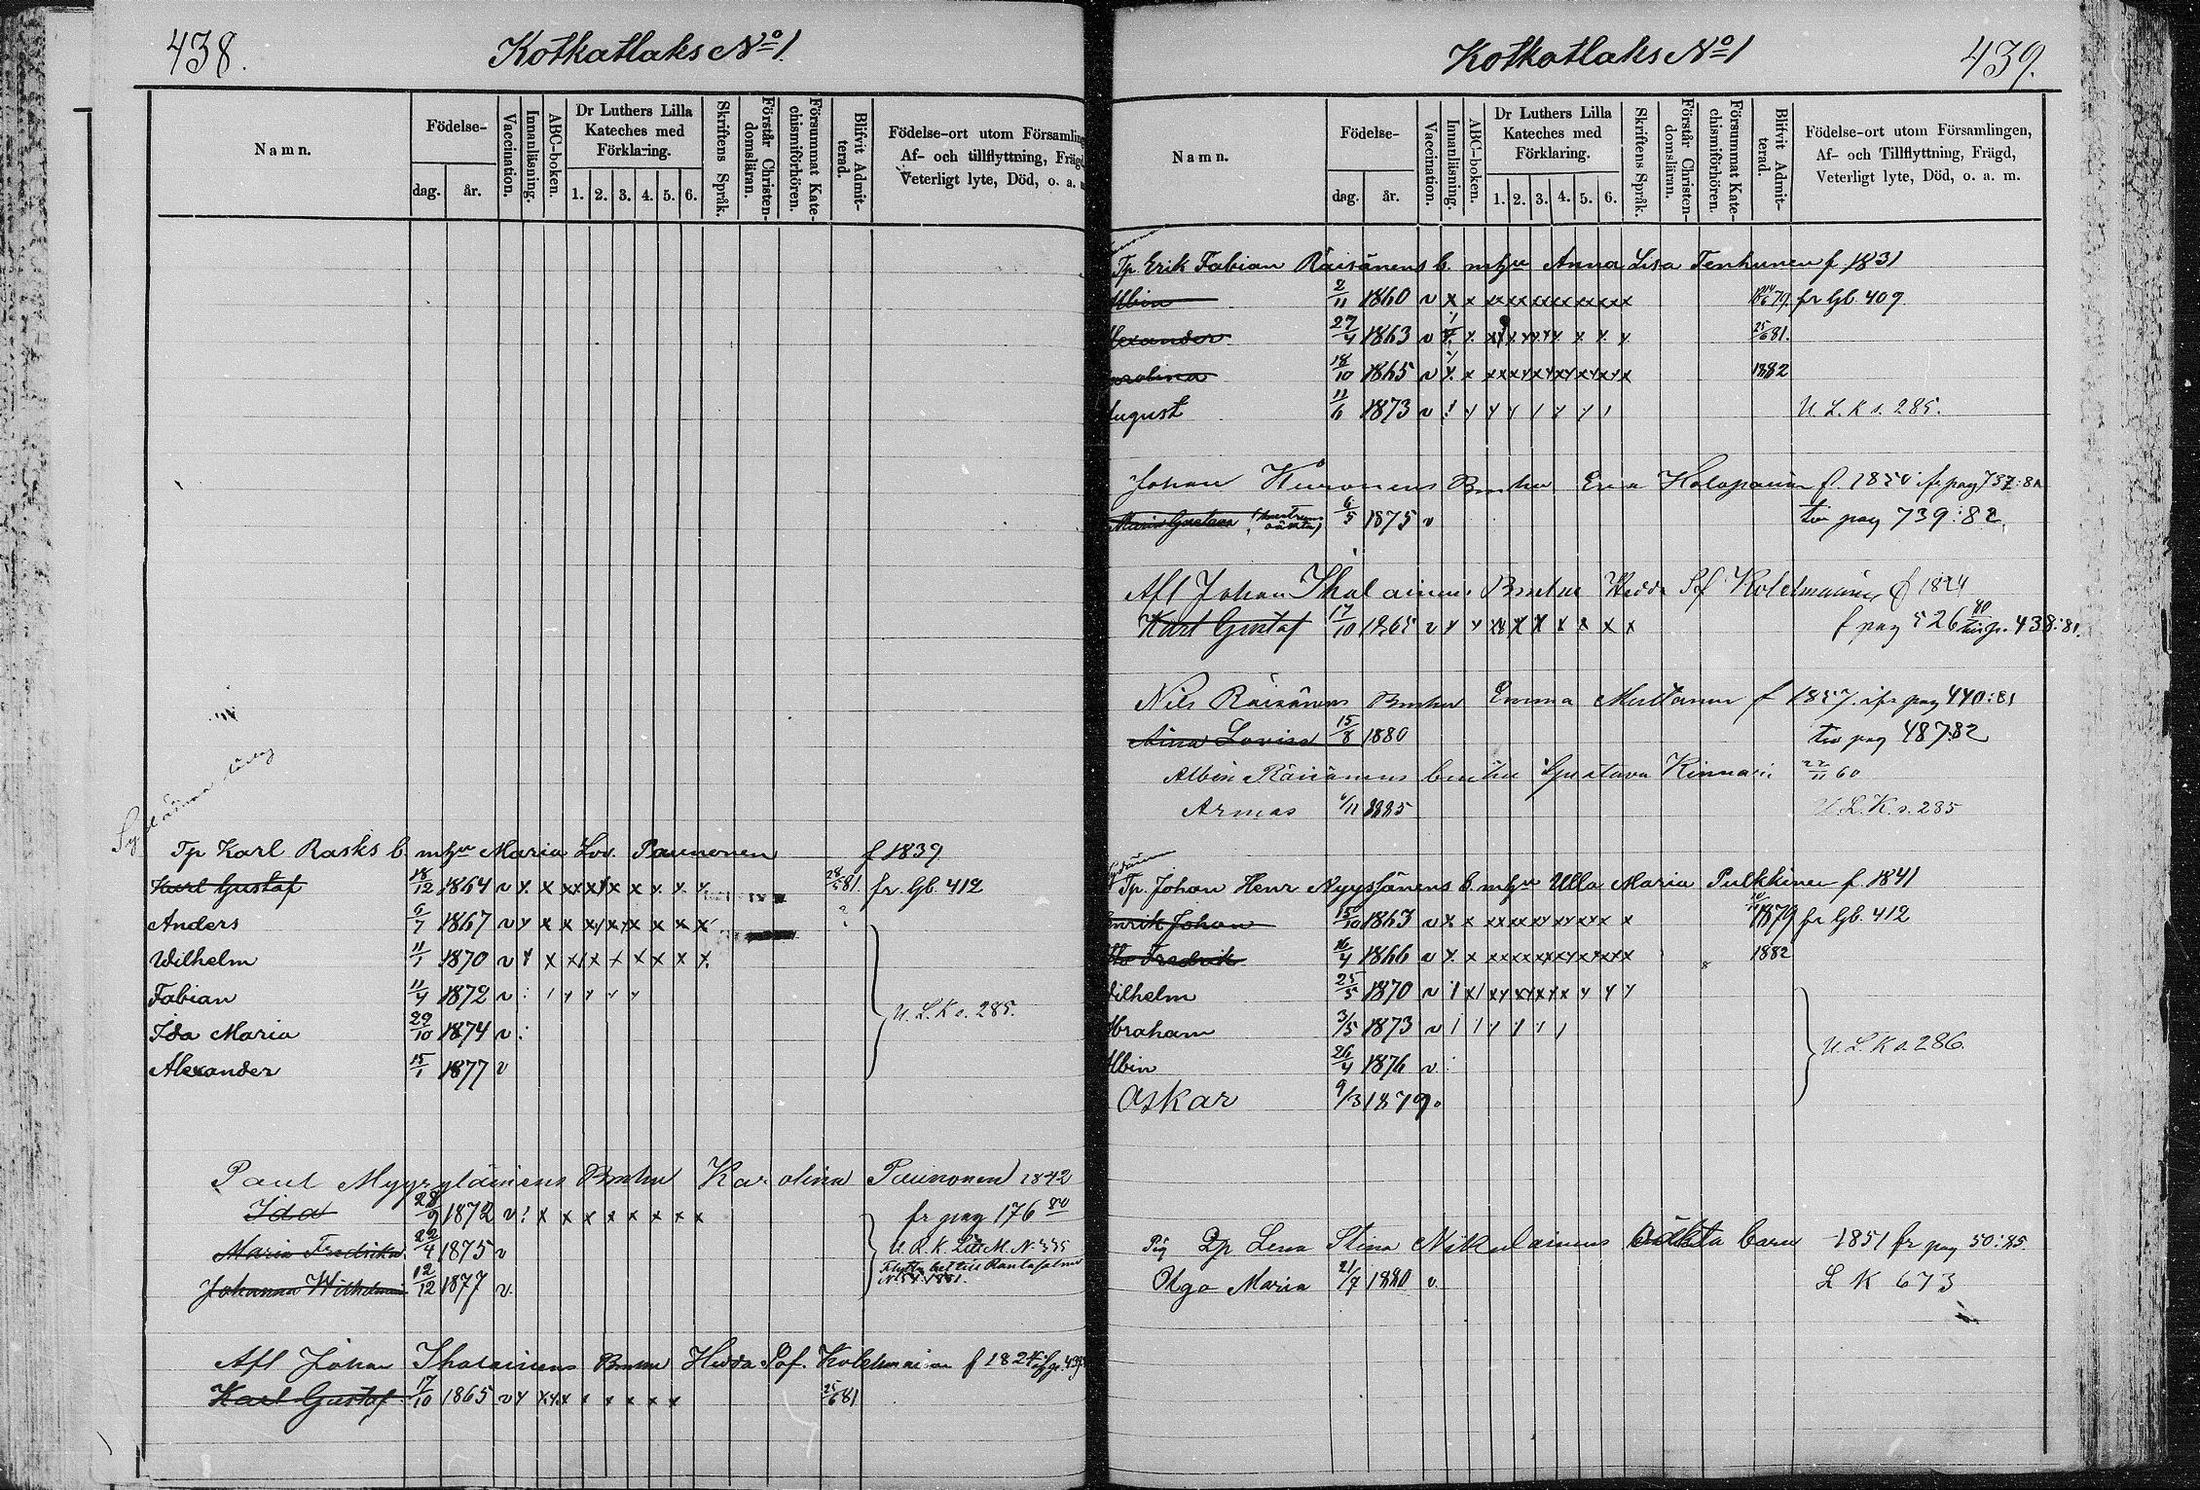 438.
Kotkatlaks No 1.
Namn.
Födelse-
dag.
år.
Vaccination.
Innanläsning.
ABC-boken.
Dr Luthers Lilla
Kateches med
Förklaring.
1. 2. 3. 4. 5. 6.
Skriftens Språk.
Förstår Christen-
domsläran.
Försummat Kate-
chismiförhören.
Blifvit Admit-
terad.
Födelse-ort utom Församling
Af- och tillflyttning, Frägd
Veterligt lyte, Död, o. a.
Tp Karl Rasks b. m hu Maria Lov. Paunonen f 1839
Karl Gustaf 18/12 1864 v 28/5 81. fr. Gb. 412
Anders 6/7 1867 v
Wilhelm 11/1 1870 v
Fabian 11/4 1872 v
Ida Maria 29/10 1874 v U. L. K s. 285.
Alexander 15/1 1877 v
Paul Myyryläinens Bmhu Karolina Paunonen 1842
Ida 28/9 1872 v fr pag 176 80
Maria Fredrika 22/4 1875 v
Johanna Wilhelmina 12/12 1877 v.
Afl Johan Ihalainens Bmhu Hedda Sof. Kolehmainen f 1824
Karl Gustaf 17/10 1865 v 25/6 81
439.
Kotkatlaks No 1
Namn.
Födelse-
dag.
år.
Vaccination.
Innanläsning.
ABC-boken.
Dr Luthers Lilla
Kateches med
Förklaring.
1. 2. 3. 4. 5. 6.
Skriftens Språk.
Förstår Christen-
domsläran.
Försummat Kate-
chismiförhören.
Blifvit Admit-
terad.
Födelse-ort utom Församlingen,
Af- och Tillflyttning, Frägd,
Veterligt lyte, Död, o. a. m.
Tp. Erik Fabian Räisänens b. m hu Anna Lisa Tenhunen f. 1831
Albin 2/11 1860 v 79. fr Gb. 409
lexander 27/4 1863 v 25/6 81.
arolina 18/10 1865 v 1882
ugust 11/6 1873 v U. L. K s. 285.
Johan Bmhu Eva Holopainen f. 1850 fr pag 737:82
Maria Gustava 6/5 1875 v tio pag 739:82,
Afl Johan Ihalainens Bmhu Hedda Sof Kolehmainen f 1824
Karl Gustaf 17/10 1865 v f pag 526 80 438:81.
Nils Räisänens Bmhu Emma Mustonen f 1857. pag 440:81
Aina Lovisa 15/8 1880 tio pag 487:82
Albin Räisänens bmhu Gustava Kinnari 22/11 60
Armas 6/11 1885 U. L. K s. 285
Tp. Johan Henr Nyyssänens b. m hu Ulla Maria Pulkkinen f. 1841
enrik Johan 15/10 1863 v 1879 fr Gb. 412
Fredrik 16/4 1866 v 1882
ilhelm 25/5 1870 v
braham 3/5 1873 v U. L. K s. 286.
lbin 26/4 1876 v
Askar 9/3 1879 v
Pig Dp Lena Stina Nikulainens Oäkta barn 1851 fr pag 50:85.
Olga Maria 21/7 1880 v. L K 673